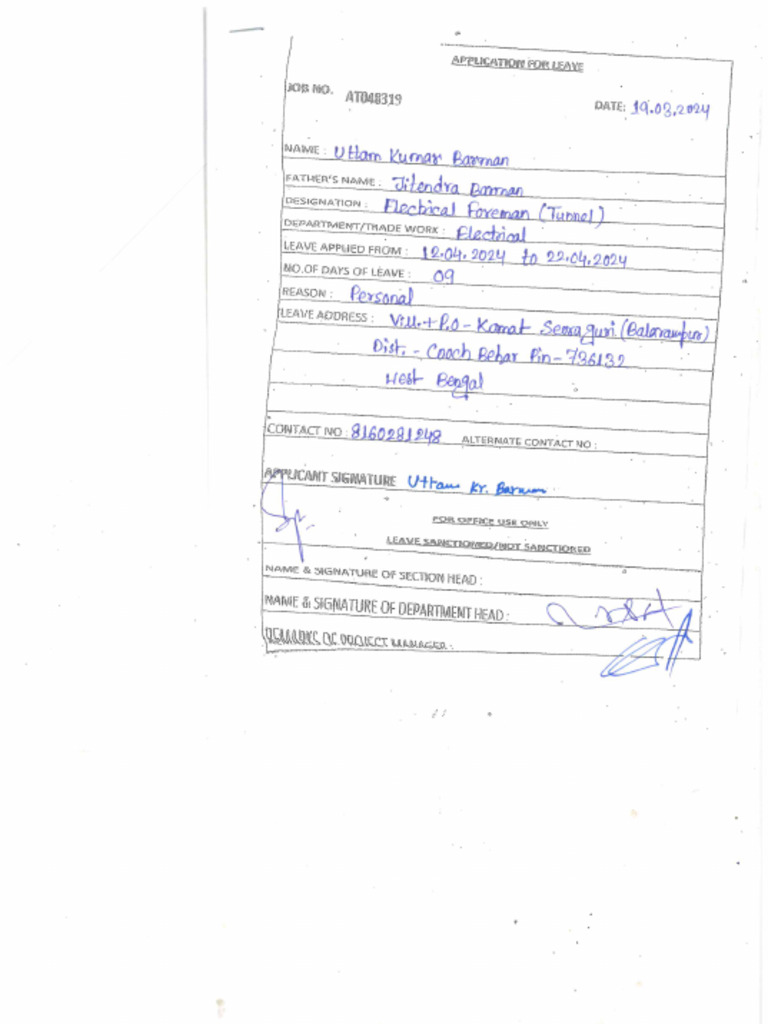 APPLICATION FOR LEAVE
JOB NO. AT048319
DATE: 19.03.2024
NAME : Uttam Kumar Barman
FATHER'S NAME : Jitendra Barman
DESIGNATION : Electrical Foreman (Tunnel)
DEPARTMENT/TRADE WORK : Electrical
LEAVE APPLIED FROM : 12.04.2024 to 22.04.2024
NO.OF DAYS OF LEAVE : 09
REASON : Personal
LEAVE ADDRESS : Vill.+P.O - Kamat (Balarampur)
Dist. - Cooch Behar Pin - 736132
West Bengal
CONTACT NO : 8160281248 ALTERNATE CONTACT NO :
APPLICANT SIGNATURE Uttam Kr. Barman
FOR OFFICE USE ONLY
LEAVE SANCTIONED/NOT SANCTIONED
NAME & SIGNATURE OF SECTION HEAD :
NAME & SIGNATURE OF DEPARTMENT HEAD :
REMARKS OF PROJECT MANAGER :